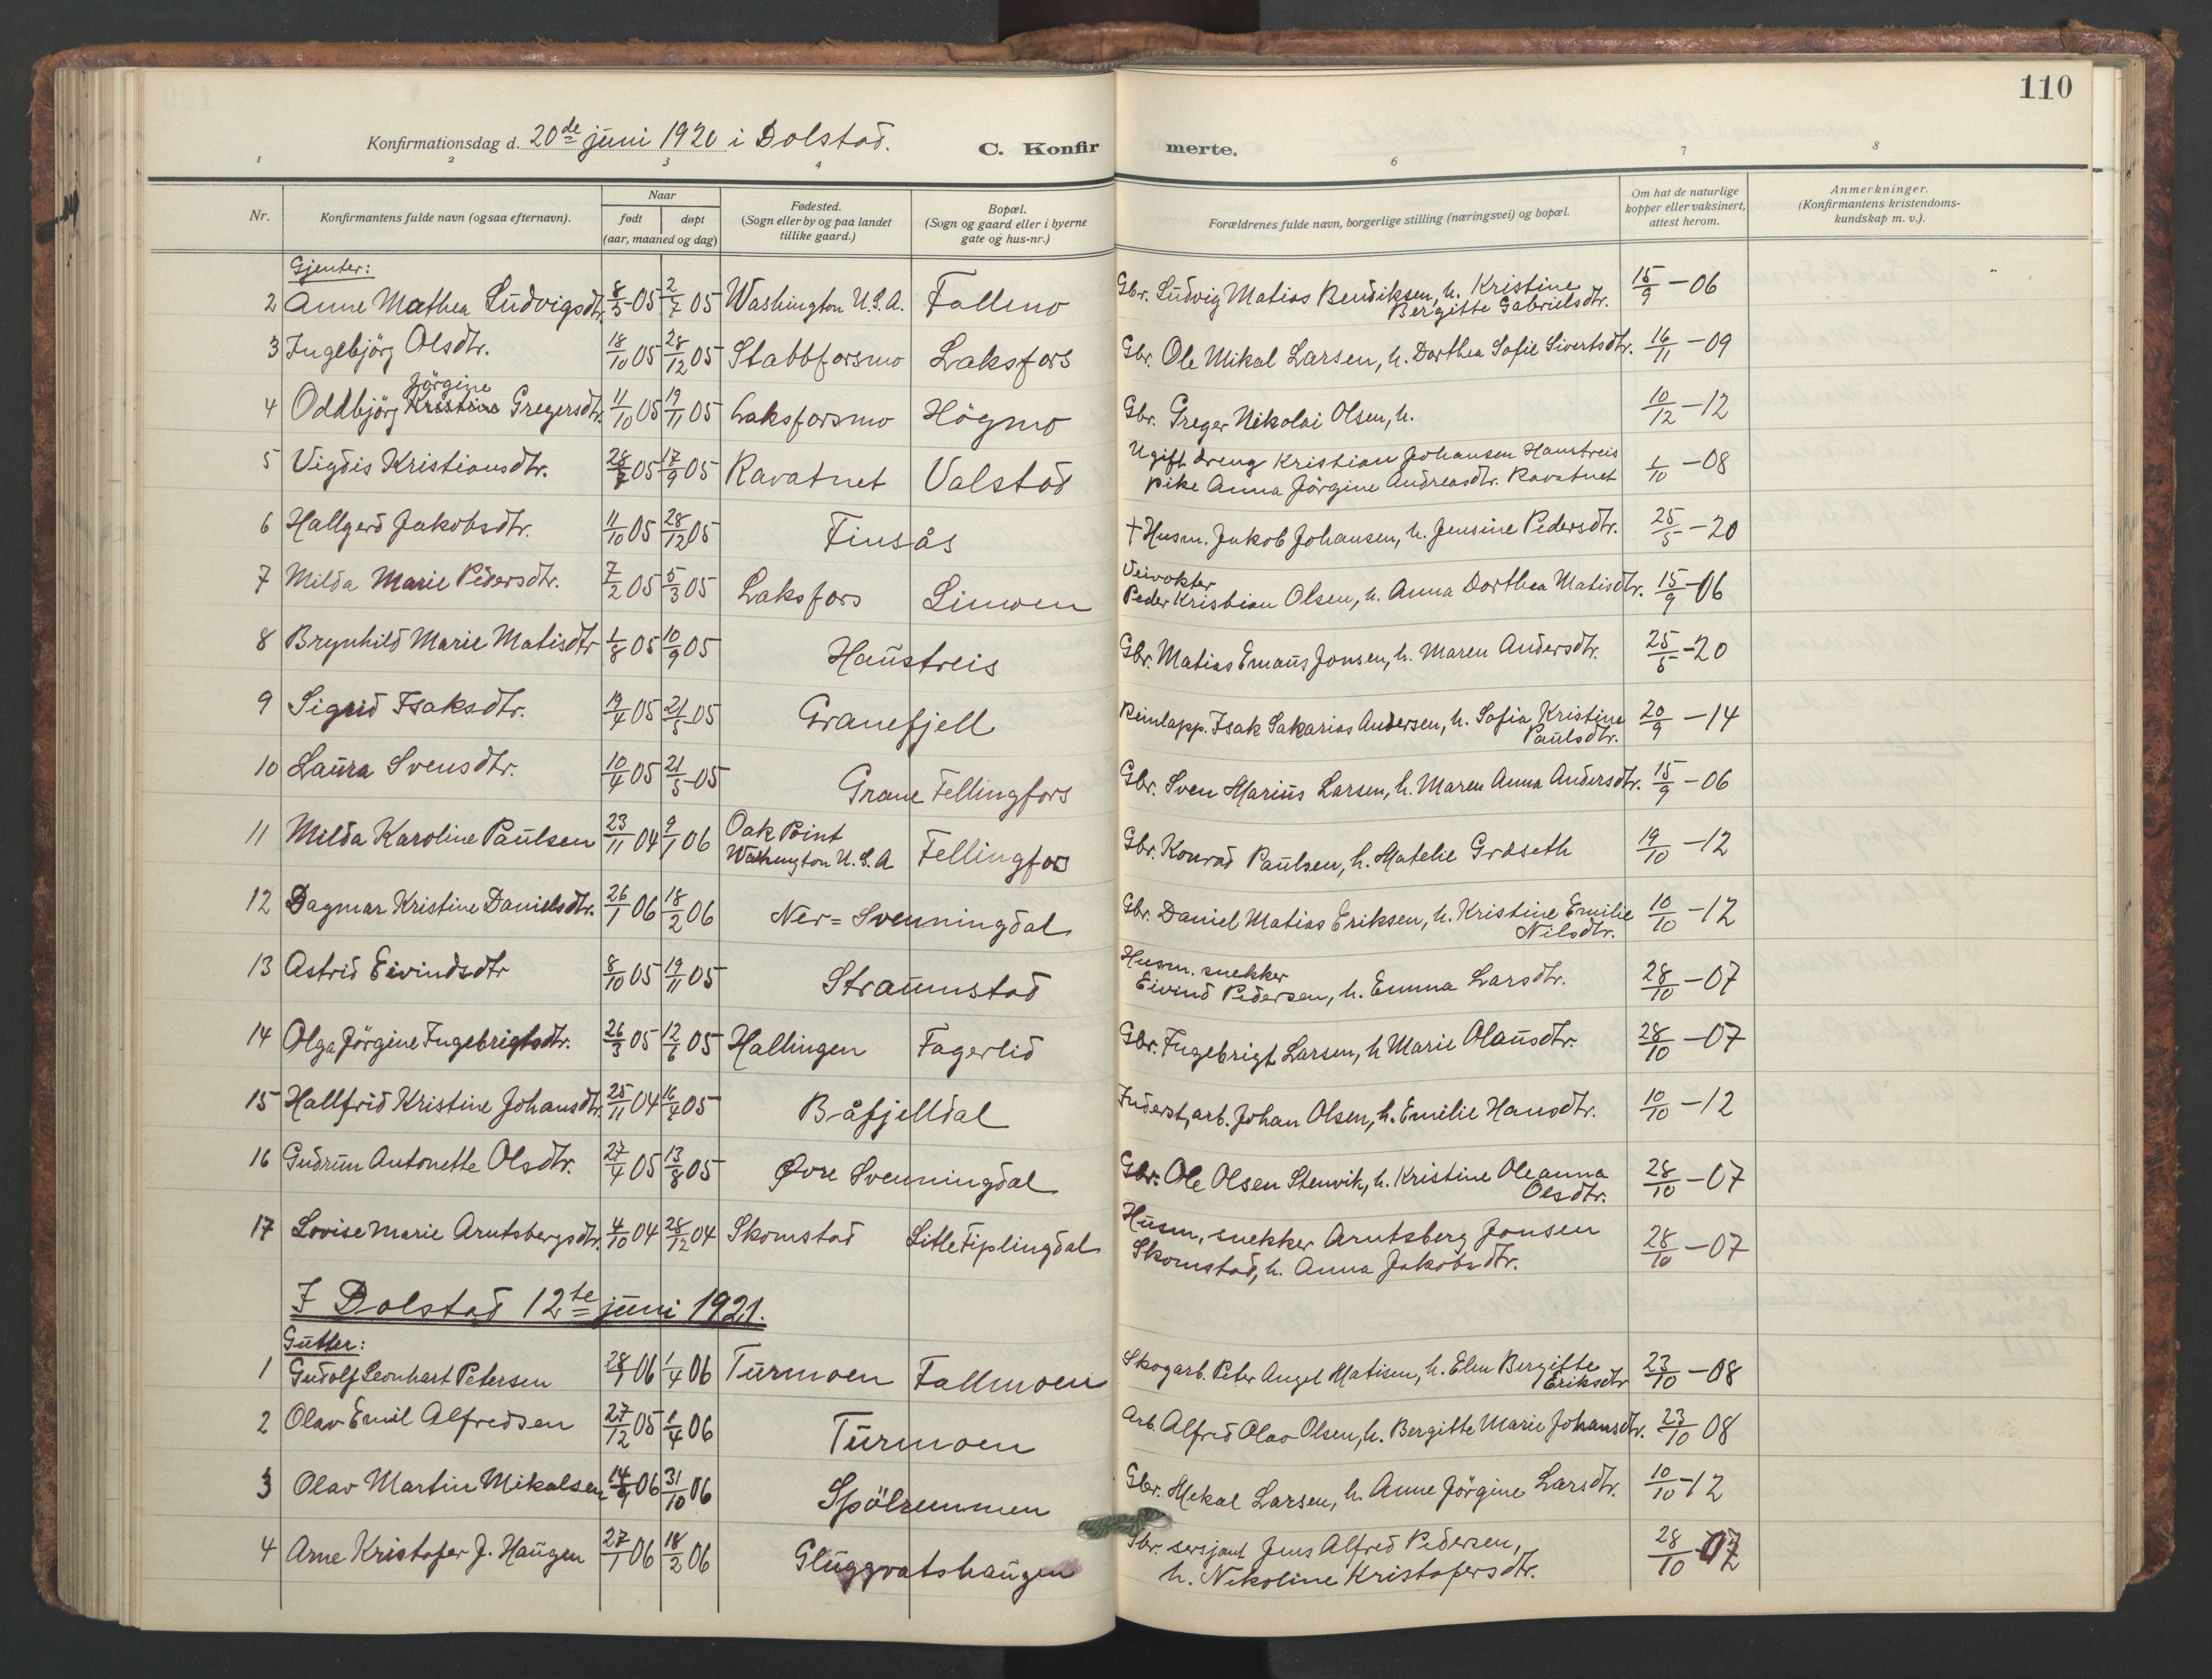 110
Konfirmationsdag d. 20de juni 1920 i Dolstad.
C. Konfirmerte.
1 2 3 4 6 7 8
Nr. Konfirmantens fulde navn (ogsaa efternavn). Naar født døpt (aar, maaned og dag) Fødested. (Sogn eller by og paa landet tillike gaard.) Bopæl. (Sogn og gaard eller i byerne gate og hus-nr.) Forældrenes fulde navn, borgerlige stilling (næringsvei) og bopæl. Om hat de naturlige kopper eller vaksinert, attest herom. Anmerkninger. (Konfirmantens kristendomskundskap m. v.).
Gjenter:
2 Anne Mathea Ludvigsdtr. 8/5-05 2/7 05 Washington U.S.A. Fallmo Gbr. Ludvig Matias Bendiksen, h. Kristine Bergitte Gabrielsdtr. 15/9-06
3 Ingebjörg Olsdtr. 18/10 05 28/12 05 Stabbforsmo Laksfors Gbr. Ole Mikal Larsen, h. Dorthea Sofie Sivertsdtr. 16/11-09
4 Oddbjörg Jörgine Kristine Gregersdtr. 11/10 05 19/11 05 Laksforsmo Högmo Gbr. Greger Nikolai Olsen, h. 10/12-12
5 Vigdis Kristiansdtr. 28/7 05 17/9 05 Ravatnet Valstad Ugift dreng Kristian Johansen Haustreis pike Anna Jörgine Andreasdtr. Ravatnet 1/10-08
6 Hallgerd Jakobsdtr. 11/10 05 28/12 05 Finsås † Husm. Jakob Johansen, h. Jensine Pedersdtr. 25/5-20
7 Milda Marie Pedersdtr. 7/2 05 5/3 05 Laksfors Limoen Veivokter Peder Kristian Olsen, h. Anna Dorthea Matisdtr. 15/9-06
8 Brynhild Marie Matisdtr 1/8 05 10/9 05 Haustreis Gbr. Matias Emaus Jonsen, h. Maren Andersdtr. 25/5-20
9 Sigrid Isaksdtr. 19/4 05 21/5-05 Granefjell Reinlapp. Isak Sakarias Andersen, h. Sofia Kristine Paulsdtr. 20/9-14
10 Laura Svensdtr. 10/4 05 21/5-05 Grane Fellingfors Gbr. Sven Marius Larsen, h. Maren Anna Andersdtr. 15/9-06
11 Milda Karoline Paulsen 23/11 04 9/1 06 Oak Point Washington U.S.A Fellingfors Gbr. Konrad Paulsen, h. Matelie Græseth 19/10-12
12 Dagmar Kristine Danielsdtr. 26/1 06 18/2 06 Ner=Svenningdal Gbr. Daniel Matias Eriksen, h. Kristine Emilie Nilsdtr. 10/10-12
13 Astrid Eivindsdtr 8/10 05 19/11 05 Straumstad Husm. snekker Eivind Pedersen, h. Emma Larsdtr. 28/10-07
14 Olga Jörgine Ingebrigtsdtr. 26/3 05 12/6 05 Hallingen Fagerlid Gbr. Ingebrigt Larsen, h Marie Olausdtr. 28/10-07
15 Hallfrid Kristine Johansdtr. 25/11 04 16/4 05 Båfjelldal Inderst, arb. Johan Olsen, h. Emilie Hansdtr. 10/10-12
16 Gudrun Antonette Olsdtr. 27/4 05 13/8 05 Øvre Svenningdal Gbr. Ole Olsen Stenvik, h. Kristine Oleanna Olsdtr. 28/10-07
17 Lovise Marie Arntsbergsdtr. 4/10 04 28/12 04 Skomstad Litletiplingdal Husm, snekker Arntsberg Jonsen Skomstad, h. Anna Jakobsdtr. 28/10-07
I Dolstad 12te juni 1921.
Gutter:
1 Gudolf Leonhart Petersen 28/1 06 1/4 06 Turmoen Fallmoen Skogarb. Peter Angel Matisen, h. Elen Bergitte Eriksdtr 23/10-08
2 Olav Emil Alfredsen 27/12 05 1/4 06 Turmoen Arb. Alfred Olav Olsen, h. Bergitte Marie Johansdtr. 23/10 08
3 Olav Martin Mikalsen 14/9 06 31/10 06 Spölremmen Gbr. Mekal Larsen, h. Anne Jörgine Larsdtr. 10/10-12
4 Arne Kristofer J. Haugen 27/1 06 18/2 06 Gluggvatshaugen Gbr. sersjant Jens Alfred Pedersen, h. Nikoline Kristofersdtr. 28/10